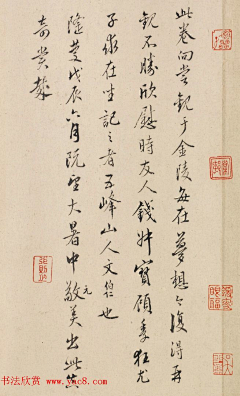 此卷向嘗觀于金陵每在夢想今復得再
觀不勝欣慰時友人錢叔寶顧季狂尤
子求在坐記之者五峰山人文伯仁也
隆慶戊辰六月既望大暑中敬元美出此共
奇賞
书法欣赏 www.yac8.com